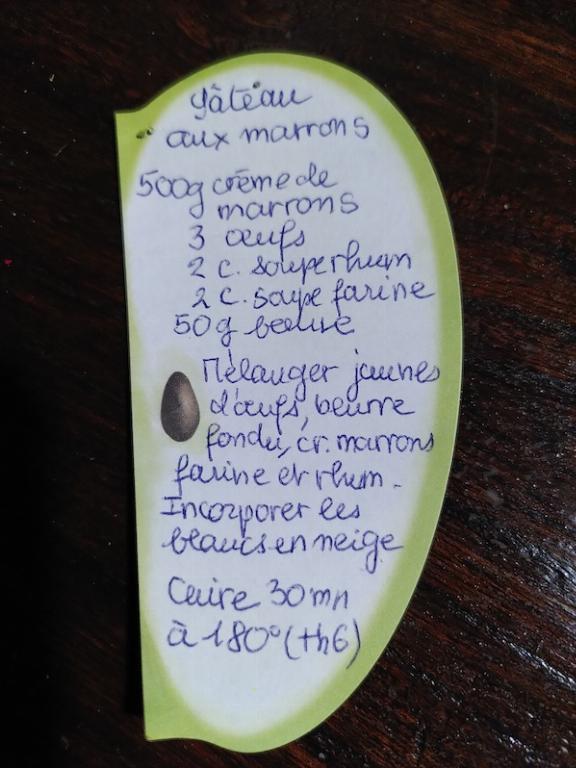 gâteau
aux marrons
500g crème de
marrons
3 œufs
2 c. soupe rhum
2 c. soupe farine
50g beurre
Mélanger jaunes
d'œufs, beurre
fondu, cr. marrons
farine et rhum.
Incorporer les
blancs en neige
Cuire 30 mn
à 180° (th6)